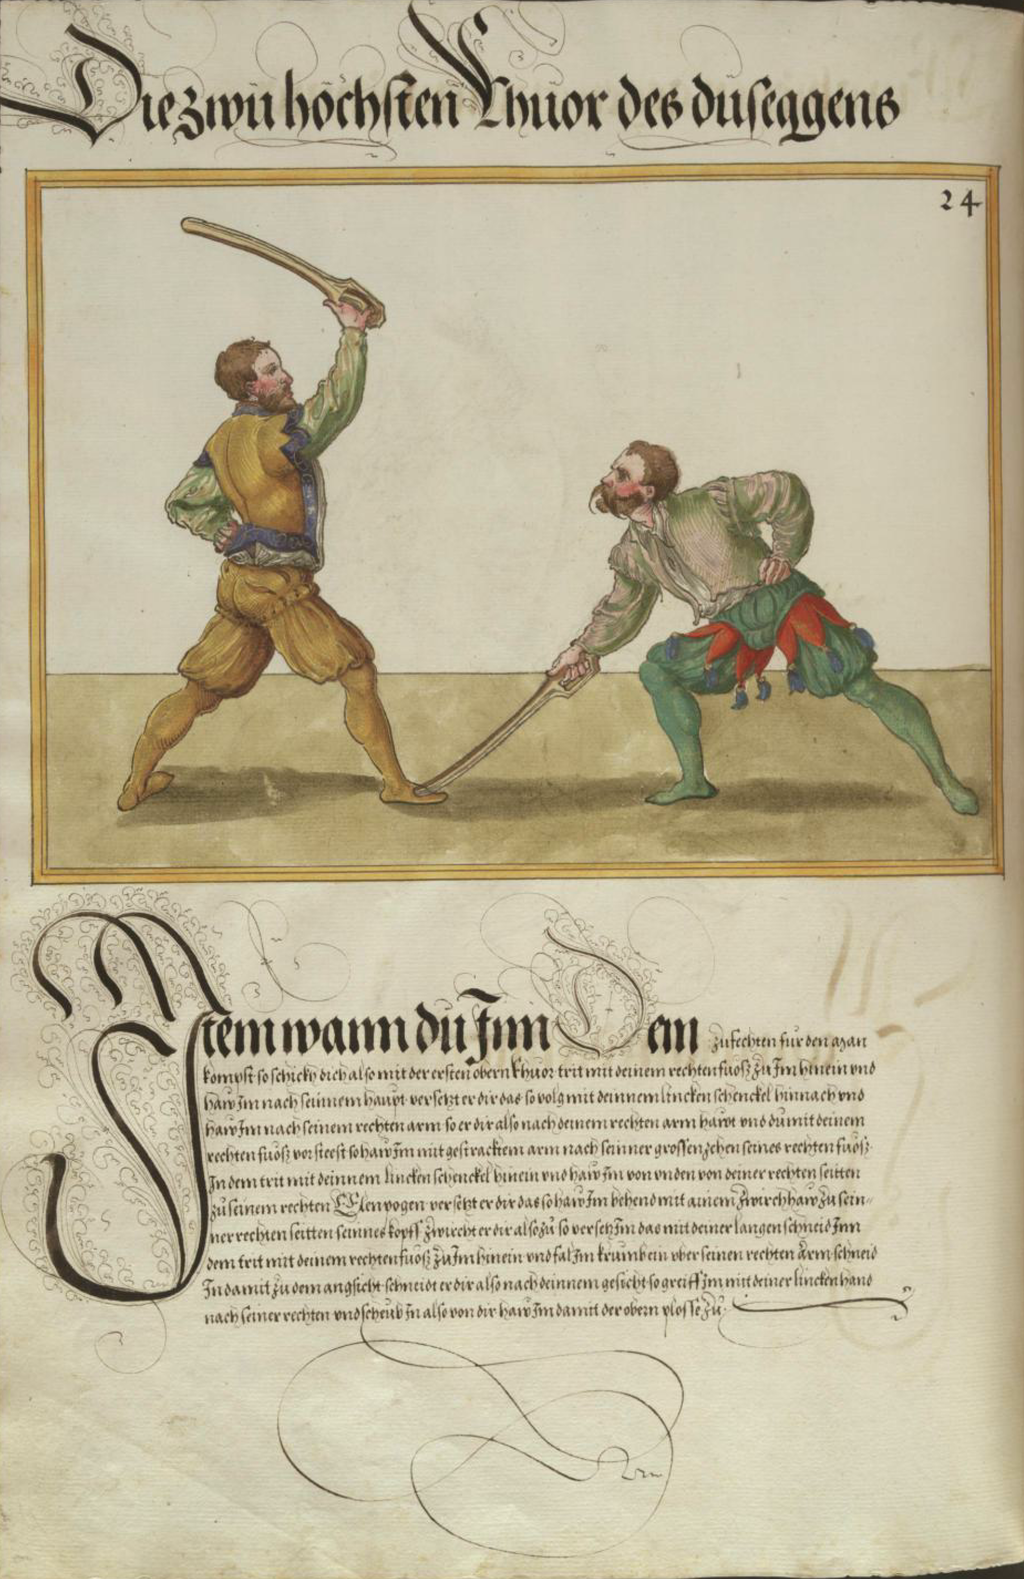 Die zwü höchsten Khuor des düseggens
24
Item wann dü Inn Dem zufechten für den man
kompst so schickh dich also mit der ersten obern khuor trit mit deinem rechten fuosz zu Im hinein vnd
haw Im nach seinnem haupt versetzt er dir das so volg mit deinnem lincken schenckel hinnach vnd
haw Im nach seinem rechten arm so er dir also nach deinem rechten arm hawt vnd du mit deinem
rechten fuosz vor steest so haw Im mit gestracktem arm nach seinner grossen zehen seines rechten fuosz
In dem trit mit deinnem lincken schenckel hinein vnd haw Im von vnden von deiner rechten seitten
zu seinem rechten Elenwogen versetzt er dir das so haw Im behend mit ainem zwirchhaw zu sein-
ner rechten seitten seinnes kopff zwircht er dir also zu so versetz Im das mit deiner langen schneid Inn
dem trit mit deinem rechten fuosz zu Im hinein vnd fal Im krumb ein vber seinen rechten Arm schneid
In damit zu dem angsicht schneidt er dir also nach deinnem gesicht so greiff Im mit deiner lincken hand
nach seiner rechten vnd scheub In also von dir haw Im damit der obern plosse zu